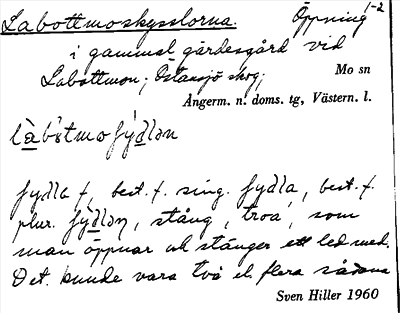 Labottmoskysslorna. Öppning 1-2
i gammal gärdesgård vid
Labottmon; Östansjö skog;
Mo sn
Ångerm. n. doms. tg, Västern. l.
fydla f, best. f. sing. fydla, best. f.
plur. fýdlǝn, stång, 'troa', som
man öppnar och stänger ett led med.
Det kunde vara två el. flera sådana
Sven Hiller 1960